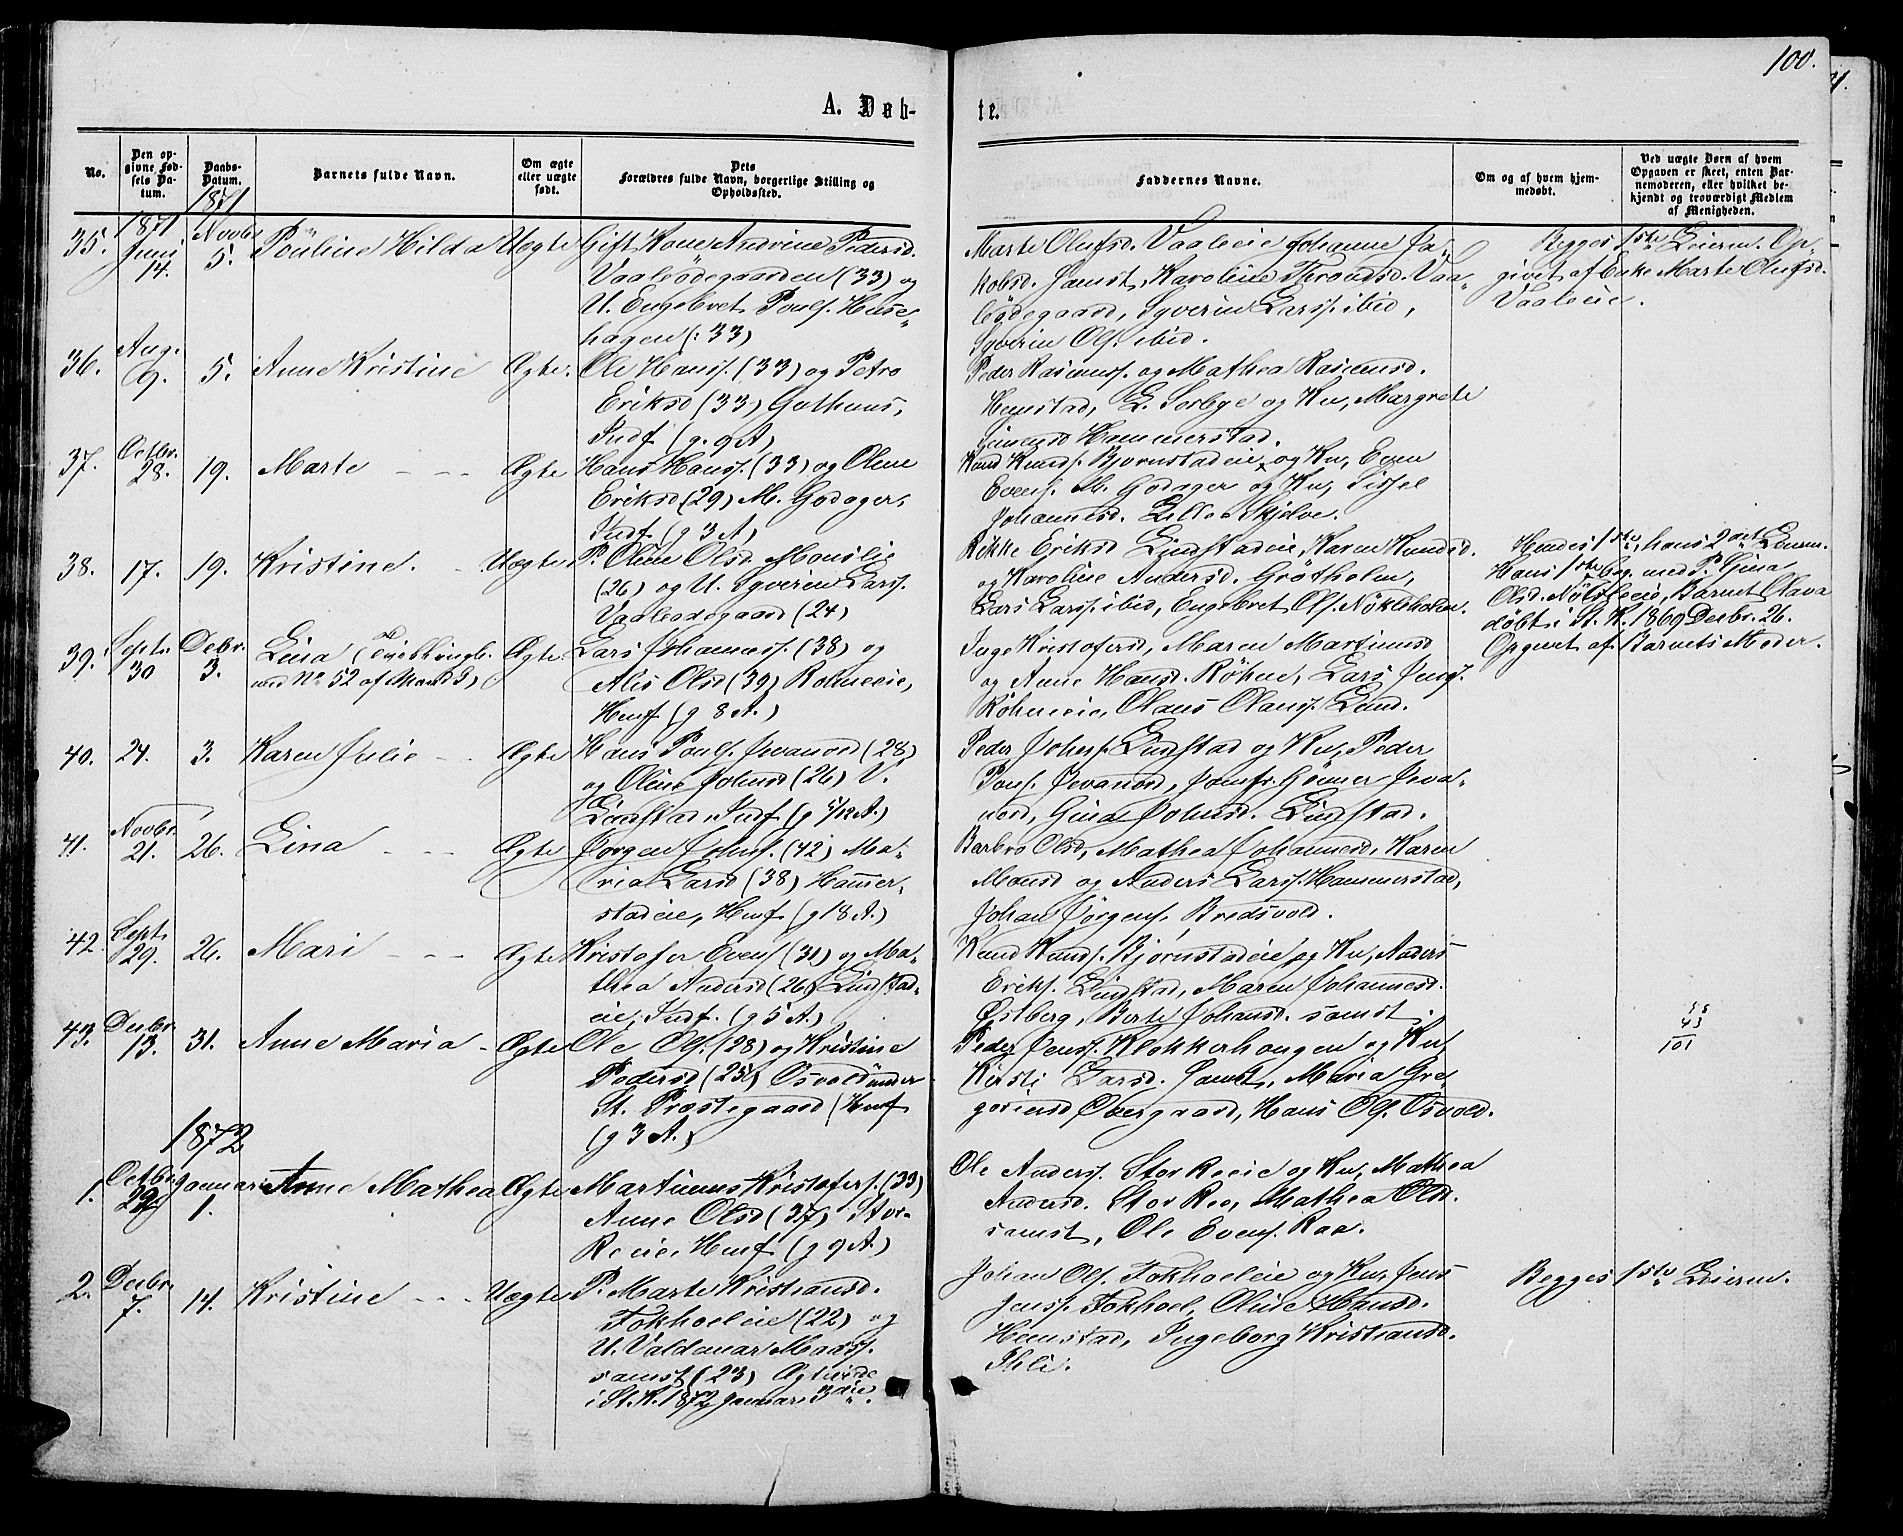 100.
A. Døb-
te.
No.
Den op-
givne Fød-
sels Da-
tum.
Daabs-
Datum.
Barnets fulde Navn.
Om ægte
eller uægte
født.
Dets
Forældres fulde Navn, borgerlige Stilling og
Opholdssted.
Faddernes Navne.
Om og af hvem hjem-
medøbt.
Ved uægte Børn af hvem
Opgaven er skeet, enten Bar-
nemoderen, eller hvilket be-
kjendt og troværdigt Medlem
af Menigheden.
1871
1871
35. Juni 14. Novbr 5. Pouline Hilda Uægte
Gift Kone Andrine Pedersd.
Vaaleødegaarden (33) og
U. Engebret Pouls. Huse-
hagen (: 33)
Marte Olufsd. Vaaleeie Johanne Ja-
kobsd. samst, Karoline Throndsd. Vaa-
leødegaard, Syverin Larss. ibid,
Syverin Ols. ibid.
Begges 1ste Leierm. Op-
givet af Enke Marte Olufsd.
Vaaleeie.
36. Aug. 9. 5. Anne Kristine Ægte.
Ole Hanss. (33) og Petro
Eriksd (33) Gothuus,
Indf. (g. 9 A)
Peder Rasmuss. og Mathea Rasmusd.
Hemstad, E. Sorbye og Ku, Margrete
Simensd Hammerstad.
37. Octbr. 28. 19. Marte Ægte
Hans Hanss. (33) og Olene
Eriksd (29) M. Godager,
Indf. (g 3 A)
Knud Knuds. Bjørnstadeie og Ku, Even
Evens. M. Godager og Ku, Sissel
Johannesd. Lille Skjelve.
38. 17. 19. Kristine. Uægte
P. Oline Olsd. Monslie
(26) og U. Syverin Larss.
Vaaleødegaard (24)
Rikke Eriksd Lindstadeie, Karen Knudsd.
og Karoline Andersd. Grøtholm,
Lars Larss. ibid, Engebret Ols. Nøkleholm.
Hendes 1ste, hans 2det Leierm.
Hans 1ste beg. med P. Gina
Olsd. Nøtsleeie, Barnet Olava
døbt i St. K. 1869 Decbr. 26.
Opgivet af Barnets Moder.
39. Septr. 30 Decbr. 3. Lina (Tvillingb.
med No 52 af Mandkj) Ægte.
Lars Johanness. (38) og
Alis Olsd (39) Rohneeie,
Husf. (g 8 A.)
Inge Kristofersd, Maren Martinusd
og Anne Hansd. Röhne, Lars Jens.
Röhneeie, Olaus Olaus. Lund.
40. 24. 3. Karen Julie Ægte
Hans Pouls. Jevanord (28)
og Oline Johnsd (26) V.
Lindstad, Indf. (g 5/12 A.)
Peder Johns. Lindstad og Ku, Peder
Pouls. Jevanord, Jomfr. Gunner Jeva-
nord, Gina Johnsd. Lindstad.
41. Novbr. 21. 26. Lina Ægte
Jørgen Johns. (42) Ma-
ria Larsd (38) Hammer-
stadeie, Husf. (g 18 A.)
Barbro Olsd, Mathea Johannesd, Karen
Monsd og Anders Larss. Hammerstad,
Johan Jørgens. Bredsvold.
42. Sept. 29. 26. Mari Ægte
Kristofer Evens. (31) og Ma-
thea Andersd (26) Lindstad-
eie, Indf. (g 5 A.)
Knud Knuds. Bjørnstadeie og Ku, Anders
Eriks. Lindstad, Maren Johannesd.
Østberg, Berte Johansd. samst.
43. Decbr. 13. 31. Anne Maria Ægte
Ole Ols. (28) og Kristine
Pedersd (25) Osvold under
St. Præstegaard (Husf
(g 3 A.)
Peder Jenss. Klokkerhougen og Ku,
Kirsti Larsd. samst, Maria Gre-
goriusd Overgaard, Hans Ols. Osvold.
58
43
101
1872
1. Octbr 22 Januar 1. Anne Mathea Ægte
Martinus Kristofers. (33)
Anne Olsd (37) Stor-
Reeie, Husf. (g 9 A.)
Ole Anderss. Stor Reeie og Ku, Mathea
Andersd. Stor Ree, Mathea Olsd.
samst, Ole Evens. Raa.
2. Decbr. 7. 14. Kristine Uægte
P. Marte Kristiansd.
Fokhoeleie (22) og
U. Valdemar Mass.
samst (23) Ægtviede
i St. K. 1872 Januar 3die.
Johan Ols. Fokhoeleie og Ku, Jens
Jenss. Fokhoel, Oline Hansd.
Hemstad, Ingeborg Kristiansd.
Ihle.
Begges 1ste Leierm.